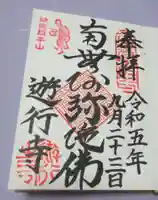 奉拝
令和五年
九月二十二日
南無阿弥陀佛
遊行寺